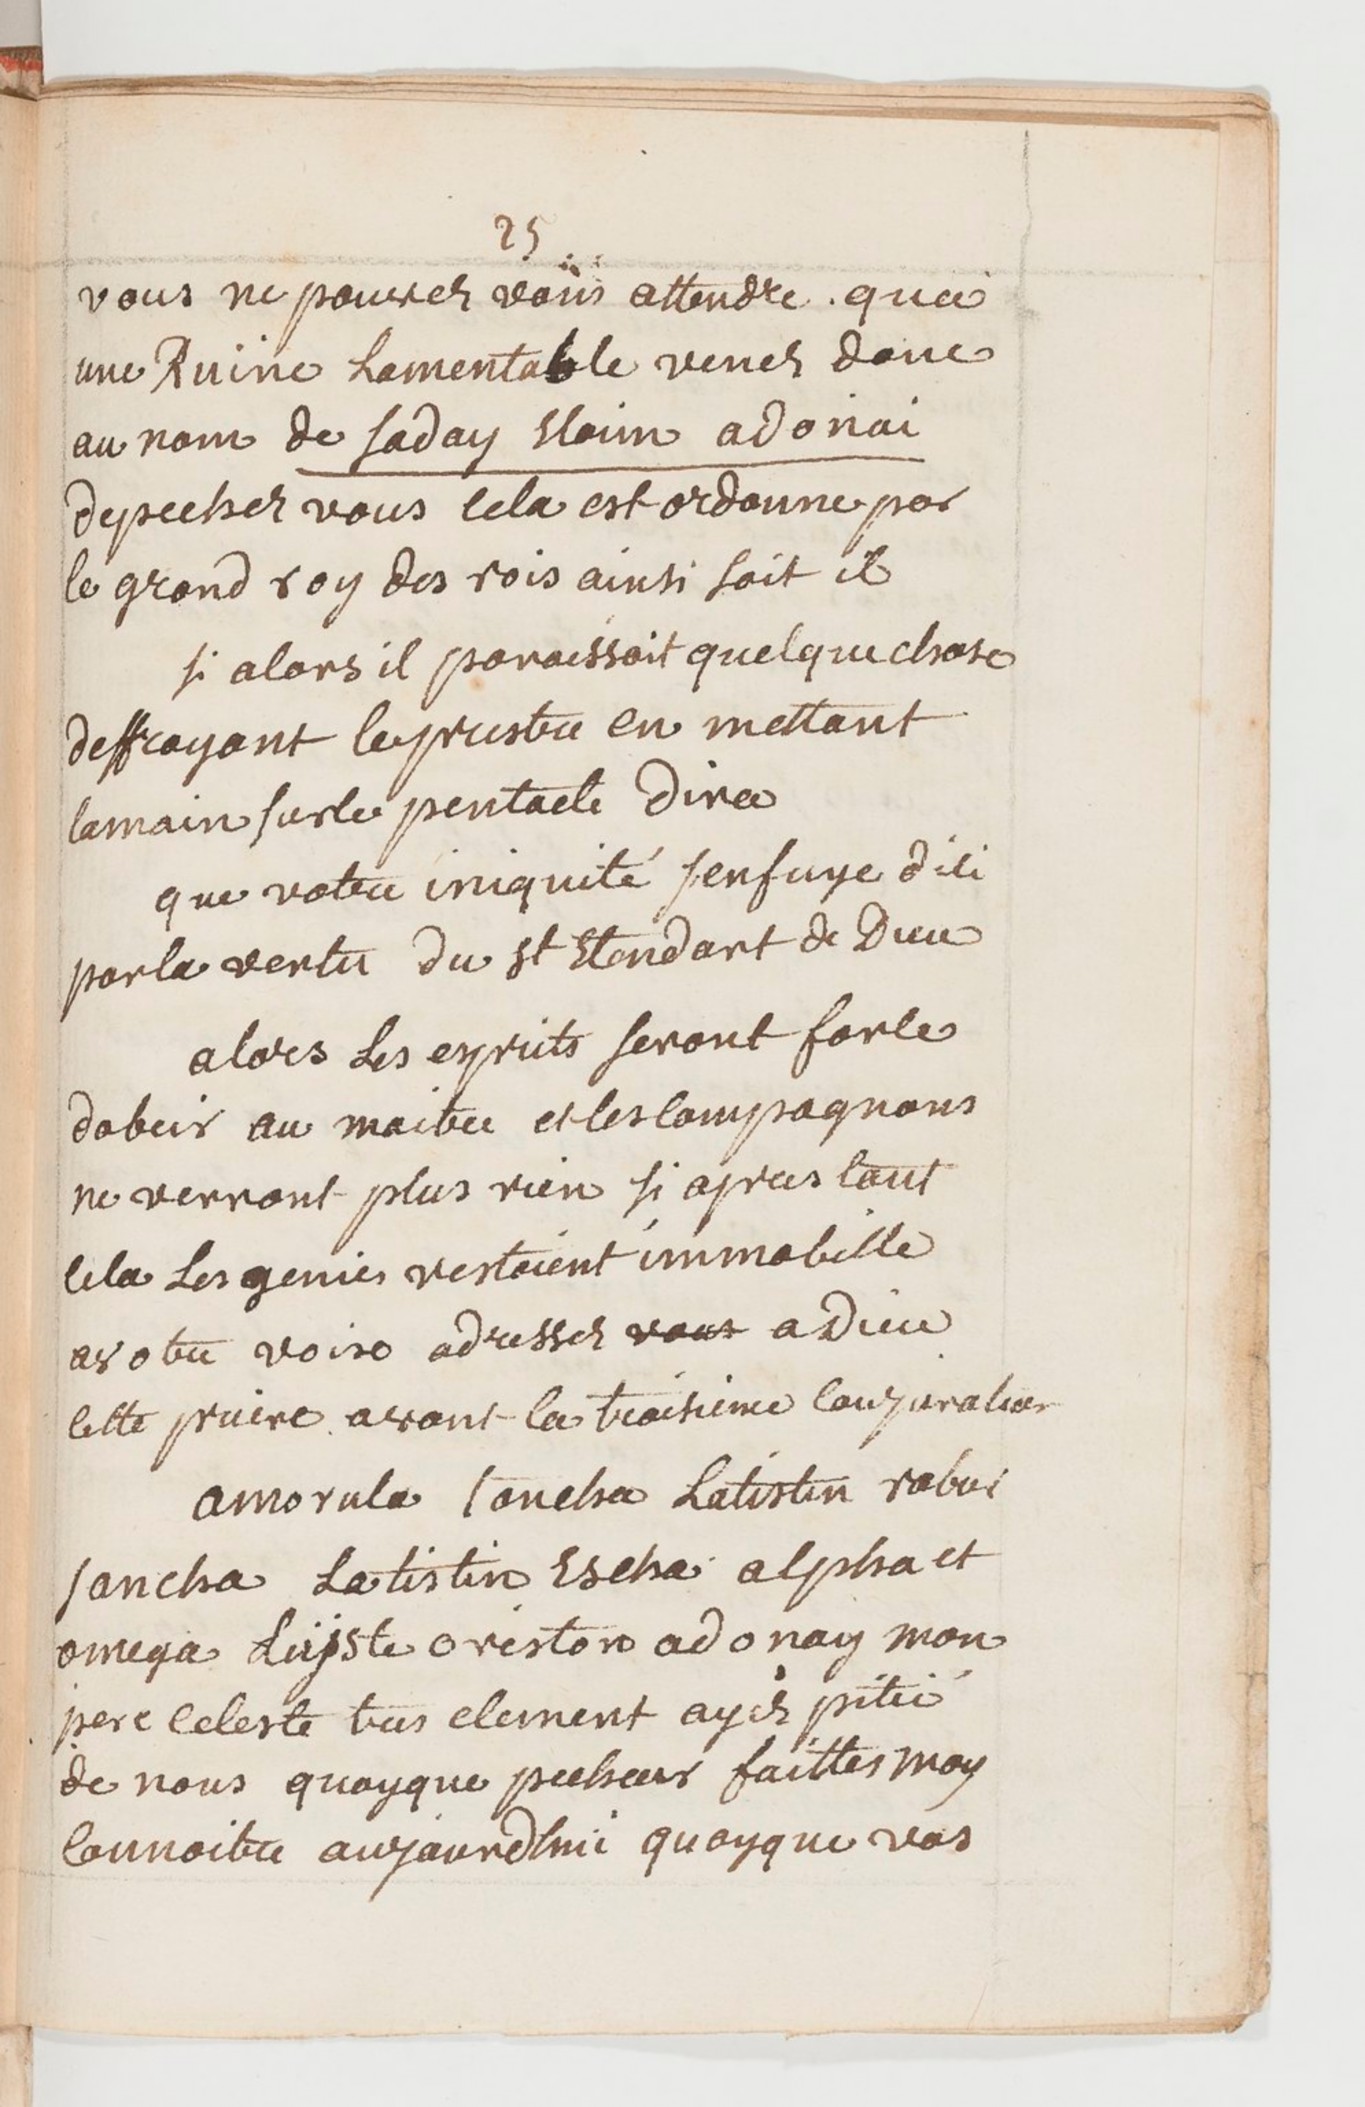 25
vous ne pouvez vous attendre qua
une Ruine Lamentable venez donc
au nom de saday Eloim adonai
depechez vous cela est ordonne par
le grand roy des rois ainsi soit il
si alors il paroissoit quelque chose
deffrayant le prestre en mettant
la main sur le pentacle dira
que votre iniquité senfuye dici
par la vertu du st Etendart de Dieu
alors Les esprits seront forcé
dobeir au maitre et les compagnons
ne verront plus rien si apres tout
cela Les genies restoient immobille
a votre voix adressez vous a Dieu
cette priere avant la troisieme conjuration
amorula tancha Latisten rabur
sancha Latistin Escha alpha et
omega Lijste oriston adonay mon
pere celeste tres clement ayez pitié
de nous quoyque pecheur faittes moy
connoitre aujourdhui quoyque vos